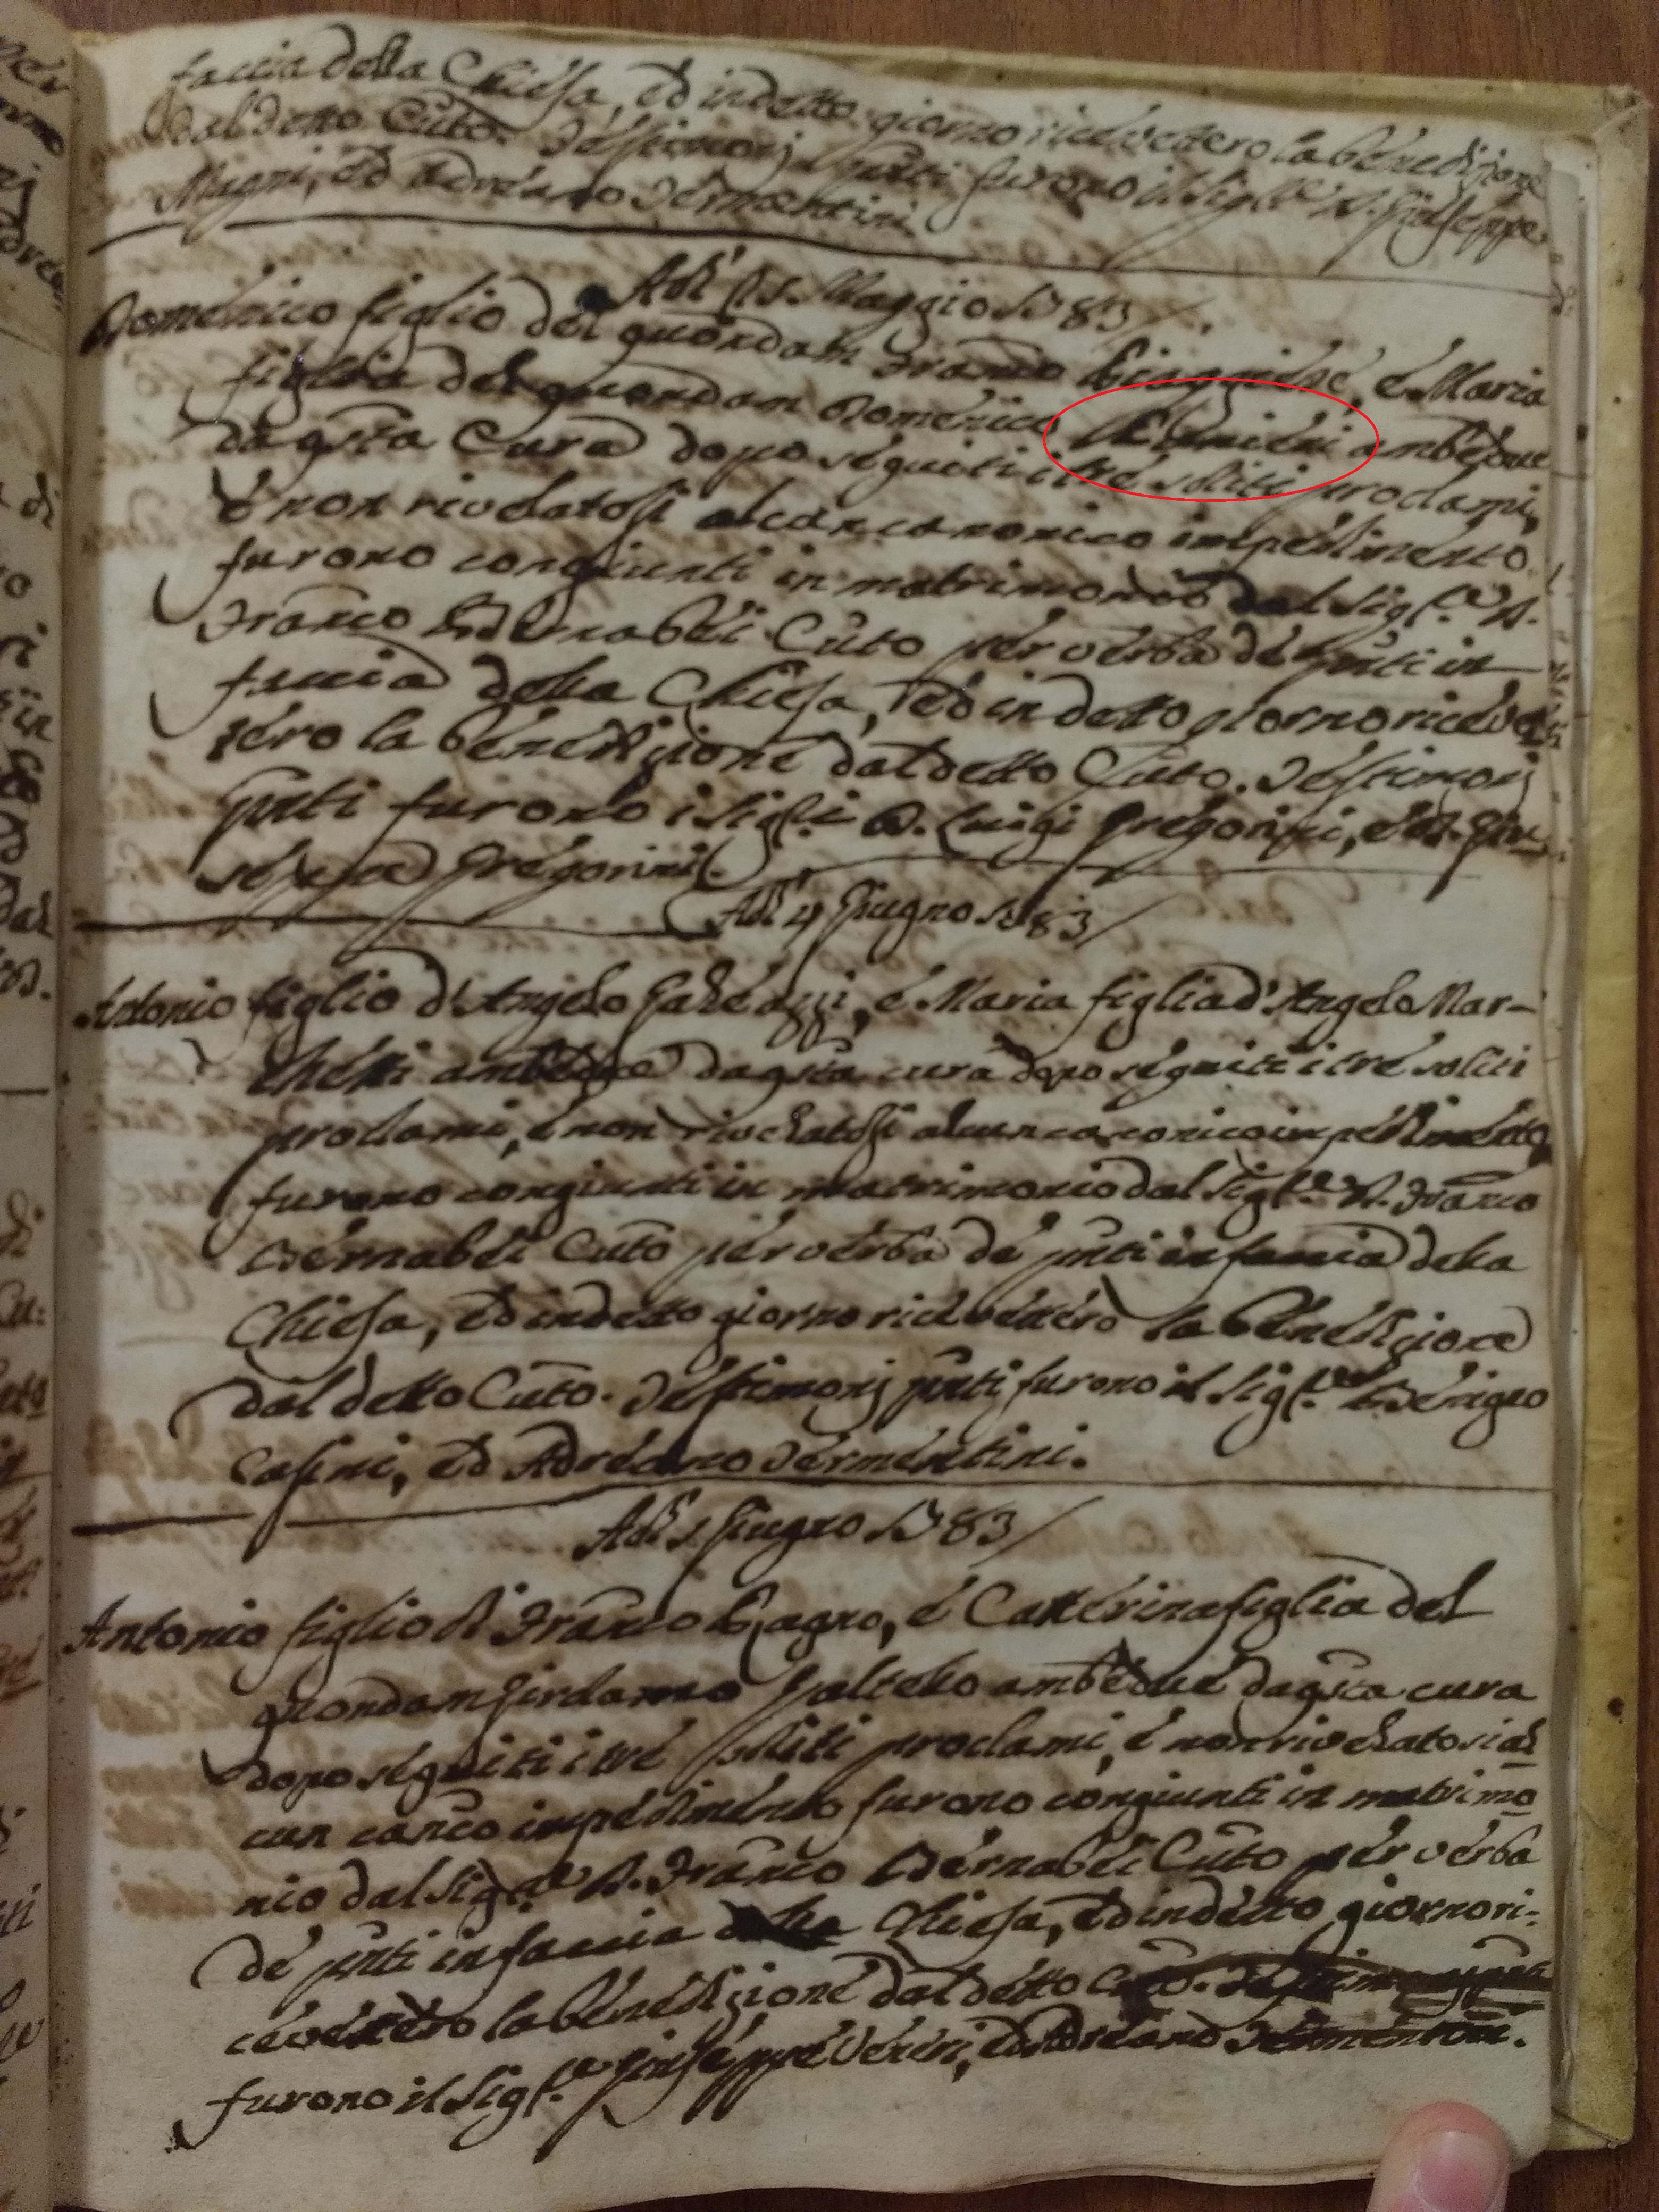 faccia della Chiesa, ed in detto giorno ricevettero la benedizione
dal detto Cũto. Testimonj pñti furono il Sigl.re D. Giuseppe
Magni, ed Adreano Termentini
Adì 15. Maggio 1783
Domenico figlio del quondam Franco é Maria
figlia del quondam Domenico ambedue
da qsta Cura dopo seguiti i tré soliti proclami,
é non rivelatosi alcun canonico impedimento
furono congiunti in matrimonio dal Sigl.re D.
Franco Bernabéi Cũto pér vérba dé pñti in
faccia della Chiesa, éd in detto giorno ricévet
téro la bénédizioné dal detto Cũto. Téstimonj
pñti furono i Sigl.i D. Luigi Gregorini, é D. Giu
séppé Grégorini.
Adì 4 Giugno 1783
Antonio figlio d'Angelo Galéazzi, é Maria figlia d'Angelo Mar-
chétti ambedue da qsta cura dopo séguiti i tré soliti
proclami, é non rivelatosi alcun canonico impédiménto
furono congiunti in matrimonio dal Sigl.re D. Franco
Bérnabéi Cũto pér vérba dé pñti in faccia della
Chiesa, éd in détto giorno ricévettéro la bénédizione
dal detto Cũto. Téstimonj pñti furono il Sigl.re
Casini, éd Adréano Términtini.
Adì 5 Giugno 1783
Antonio figlio di Franco é Catterina figlia del
quondam ambedué da qsta cura
dopo séguiti i tré soliti proclami, é non rivelatosi al
cun canco impédiménto furono congiunti in matrimo
nio dal Sigl.re D. Franco Bérnabéi Cũto pér vérba
dé pñti in faccia della Chiésa, éd in détto giorno ri-
cévéttéro la bénédizioné dal détto Cũto. Testimonj pñti
furono il Sigl.re Giuséppé Vérini, éd Adréano Términtini.